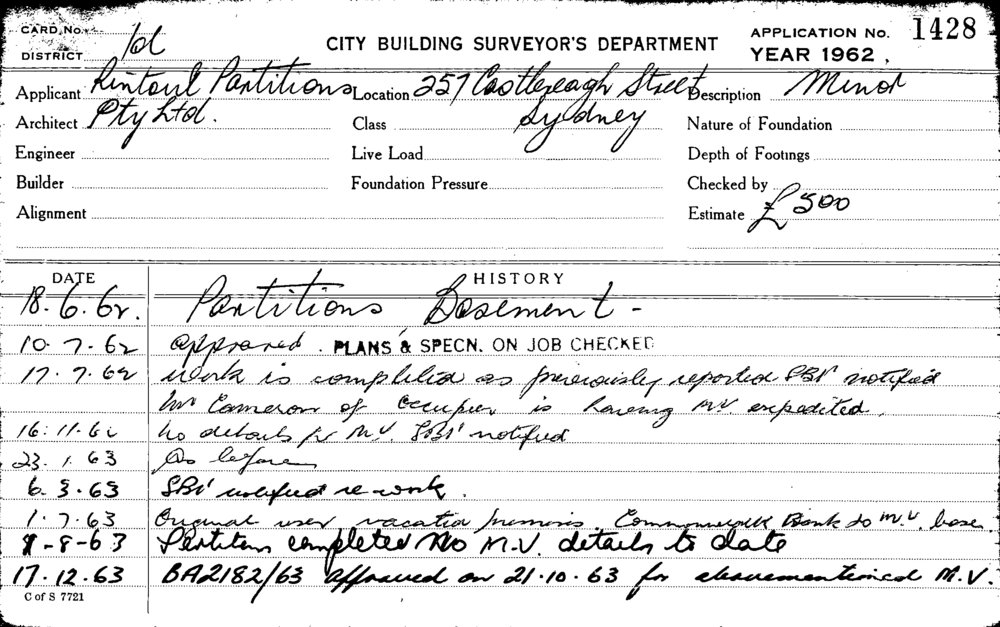 CARD No.
DISTRICT 1d
CITY BUILDING SURVEYOR'S DEPARTMENT
APPLICATION No. 1428
YEAR 1962
Applicant Rintoul Partitions Location 257 Castlereagh Street Description Minor
Architect Pty Ltd. Class Sydney Nature of Foundation
Engineer Live Load Depth of Footings
Builder Foundation Pressure Checked by
Alignment Estimate £500
DATE HISTORY
18.6.62. Partitions Basement -
10.7.62 approved. PLANS & SPECN. ON JOB CHECKED
17.7.62 Work is completed as previously reported SBI notified
Mr Cameron of Occupier is having M.V. expedited.
16.11.62 No details for M.V. SBI notified
23.1.63 As before
6.3.63 SBI notified re work.
1.7.63 Original user vacated premises. Commonwealth Bank to M.V. base
9-8-63 Partitions completed No M.V. details to date
17.12.63 BA2182/63 approved on 21.10.63 for abovementioned M.V.
C of S 7721